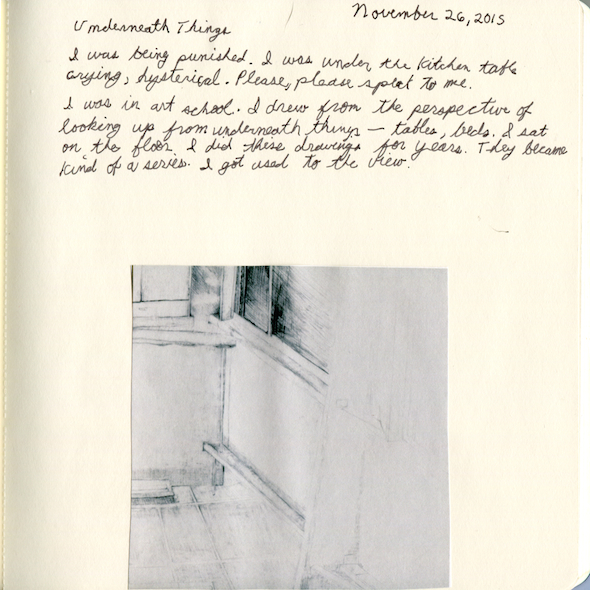 November 26, 2015
Underneath Things
I was being punished. I was under the kitchen table
crying, hysterical. Please, please speak to me.
I was in art school. I drew from the perspective of
looking up from underneath things — tables, beds. I sat
on the floor. I did these drawings for years. They became
kind of a series. I got used to the view.